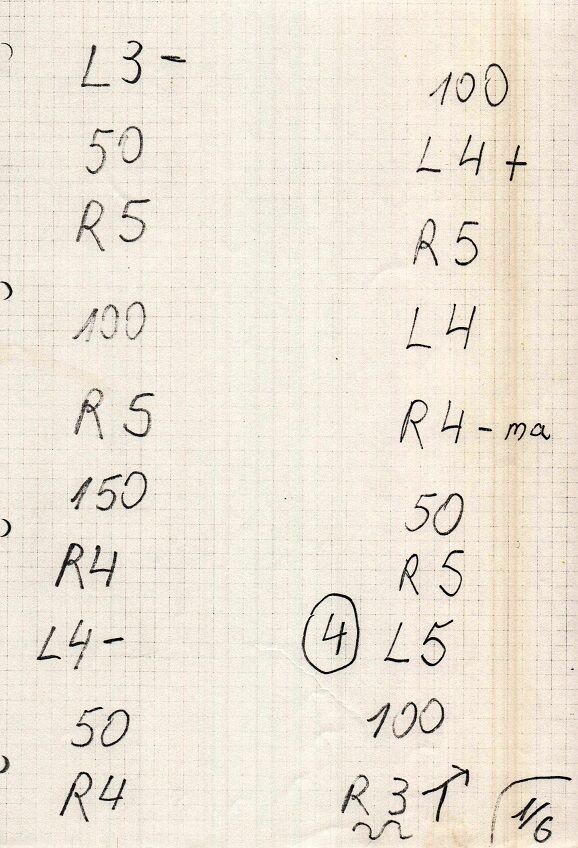 L3-
50
R5
100
R5
150
R4
L4-
50
R4
100
L4+
R5
L4
R4-ma
50
R5
4 L5
100
R3
1/6